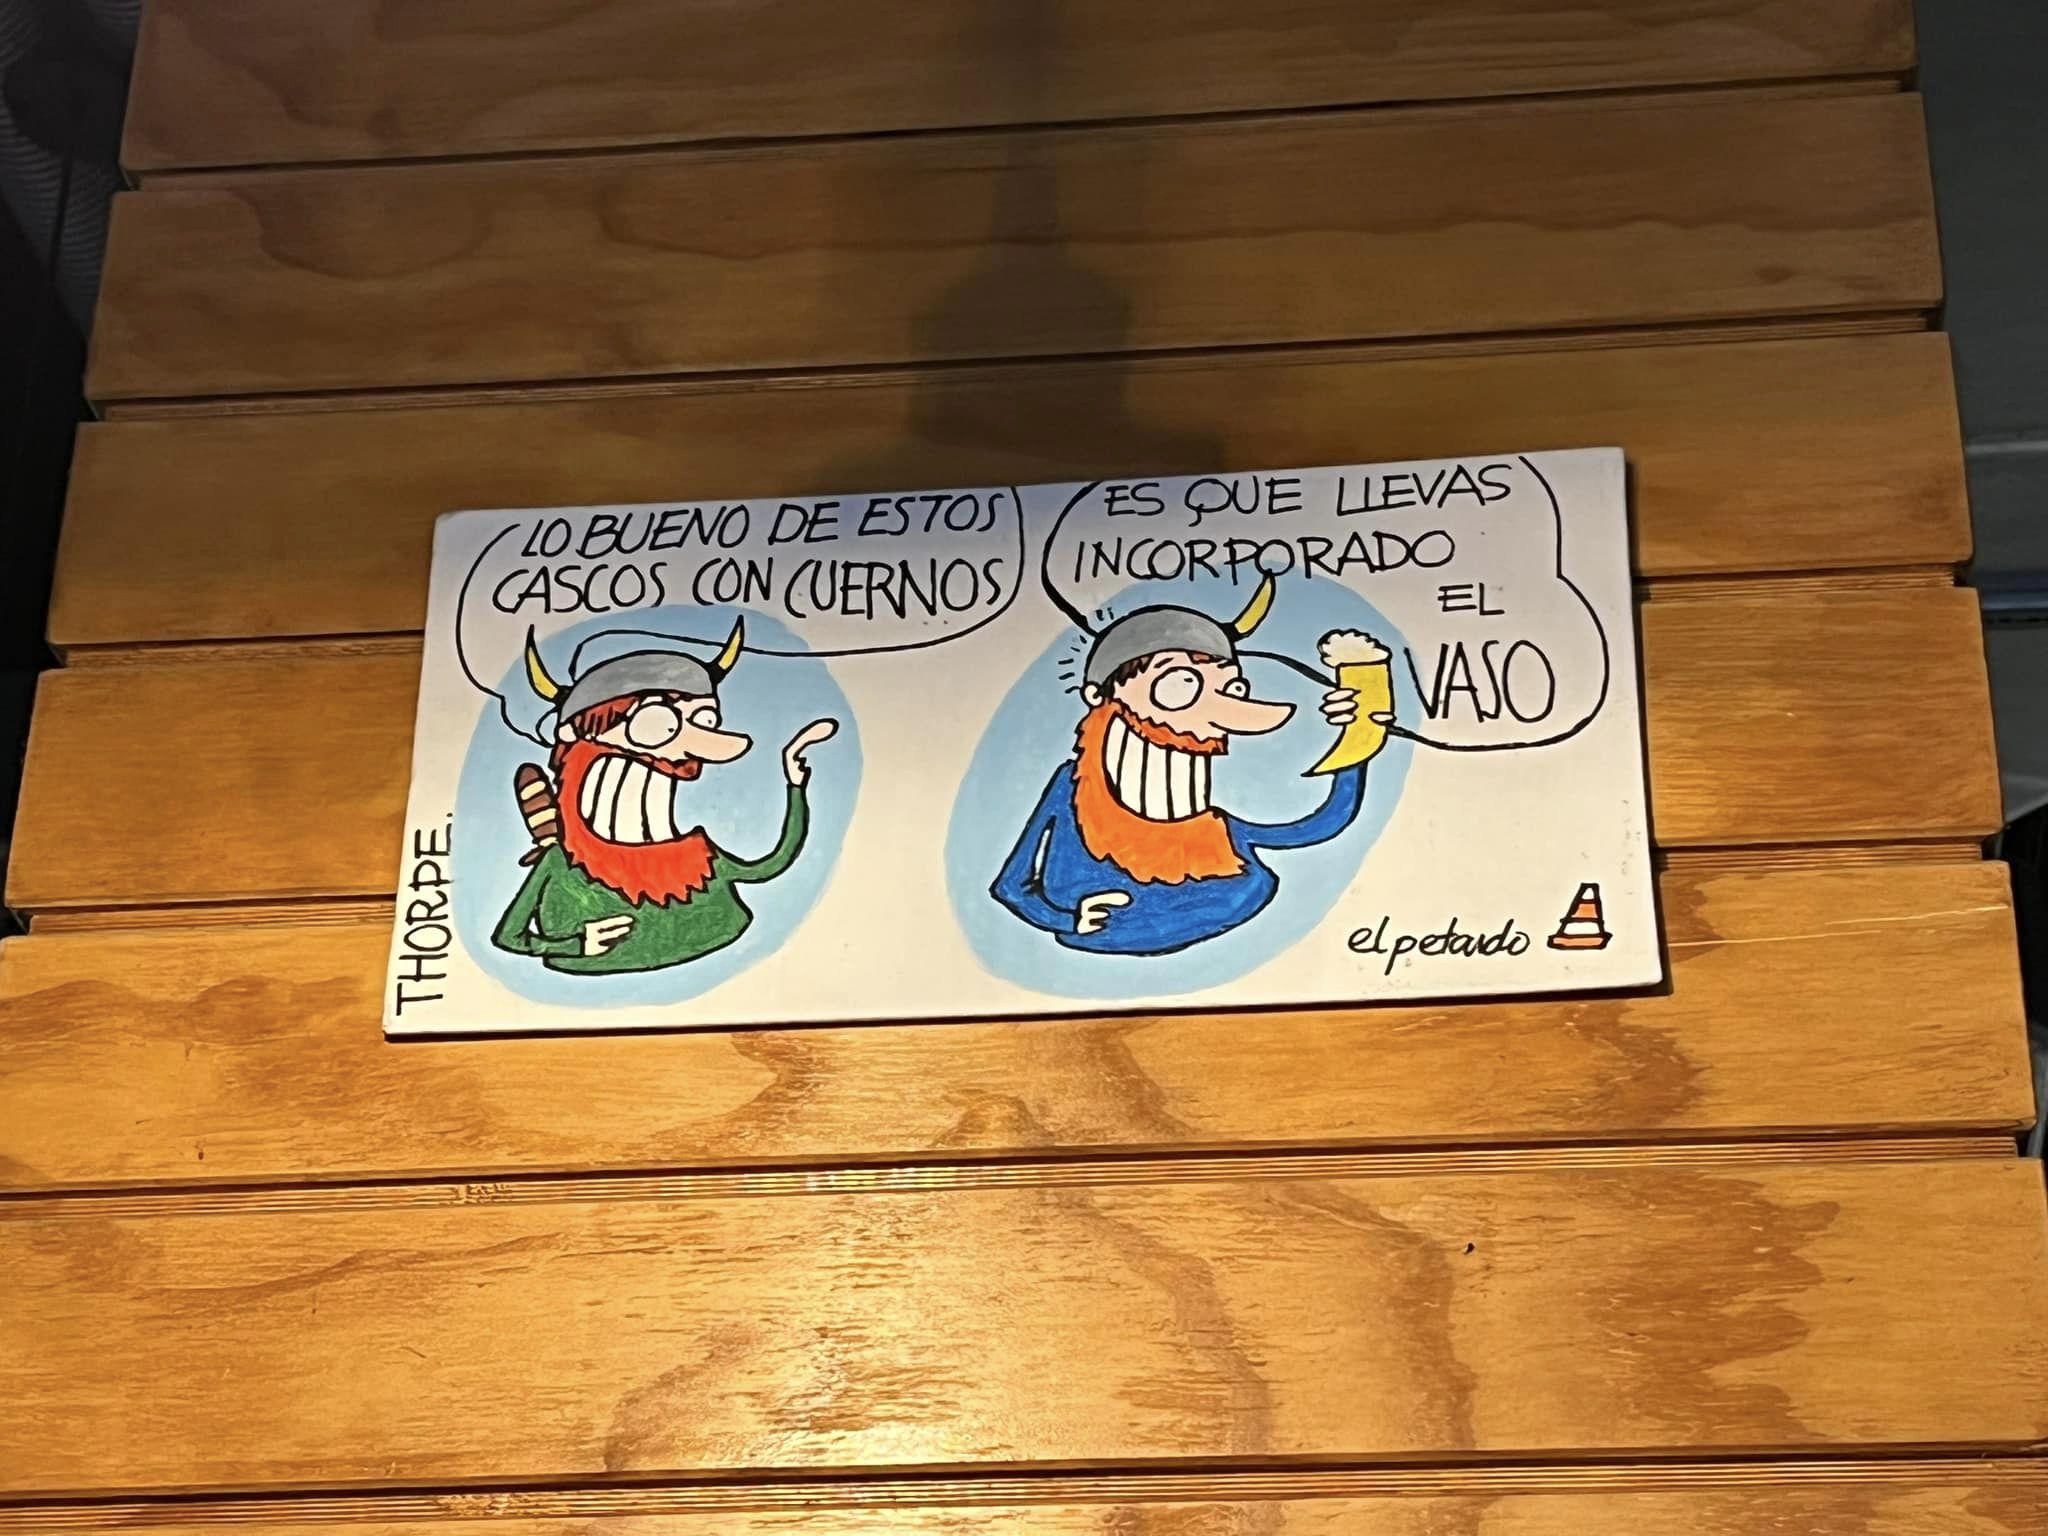 LO BUENO DE ESTOS
CASCOS CON CUERNOS
ES QUE LLEVAS
INCORPORADO
EL
VASO
THORPE.
el petardo